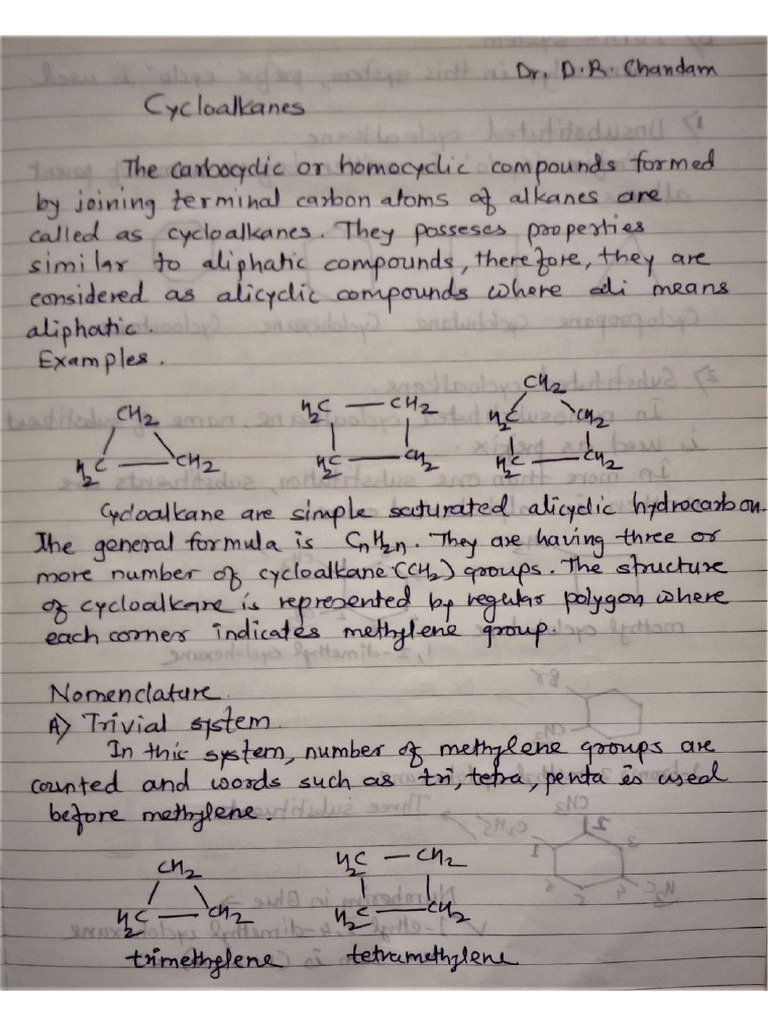 Dr. D.R. Chandam
Cycloalkanes
The carbocyclic or homocyclic compounds formed
by joining terminal carbon atoms of alkanes are
called as cycloalkanes. They posseses properties
similar to aliphatic compounds, therefore, they are
considered as alicyclic compounds where ali means
aliphatic.
Examples.
CH2 H2C — CH2 CH2
H2C CH2
H2C — CH2 H2C — CH2 H2C — CH2
Cycloalkane are simple saturated alicyclic hydrocarbon.
The general formula is CnH2n. They are having three or
more number of cycloalkane (CH2) groups. The structure
of cycloalkane is represented by regular polygon where
each corner indicates methylene group.
Nomenclature
A) Trivial system
In this system, number of methylene groups are
counted and words such as tri, tetra, penta is used
before methylene.
CH2 H2C — CH2
H2C — CH2 H2C — CH2
trimethylene tetramethylene